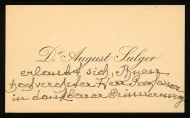 Dr August Sulger
erlaubt sich, Ihnen
hochverehrter Herr Professor
in dankbarer Erinnerung